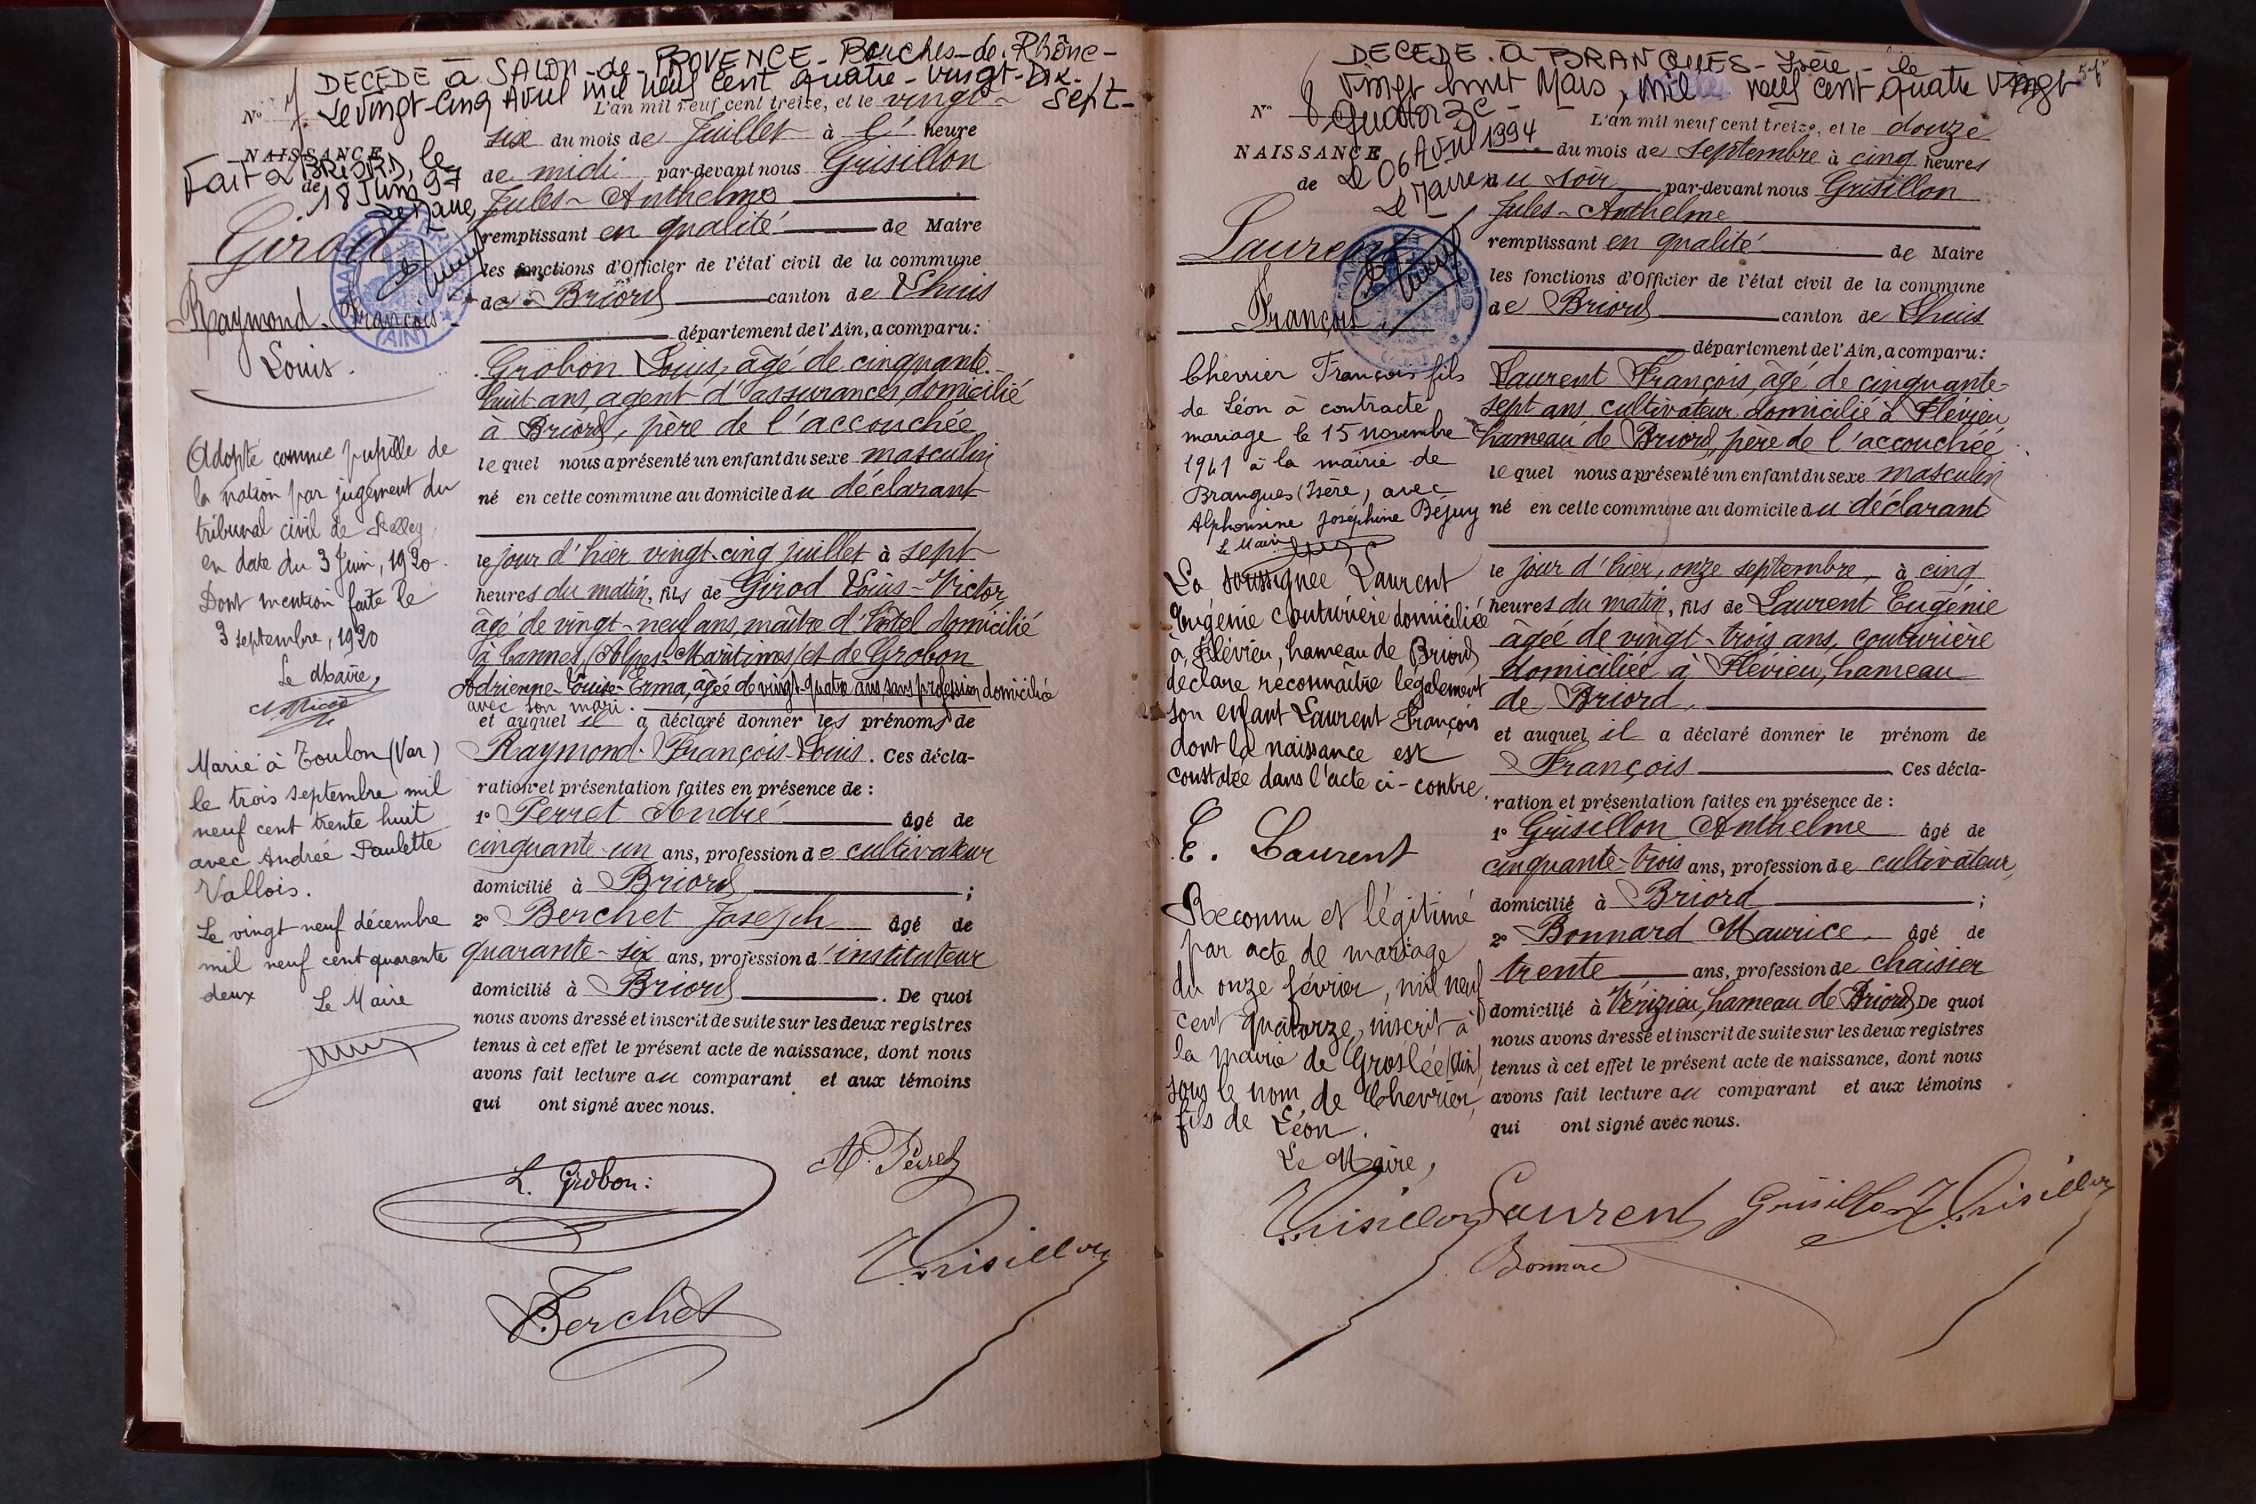 DECEDE à SALON-de-PROVENCE-Bouches-de-Rhône-
Le vingt-Cinq Avril mil neuf cent quatre-vingt-Dix-
Sept-
N° 7
L'an mil neuf cent treize, et le vingt-
six du mois de Juillet à l' heure
de midi par-devant nous Grisillon
Jules-Anthelme
remplissant en qualité de Maire
les fonctions d'Officier de l'état civil de la commune
de Briord canton de Lhuis
département de l'Ain, a comparu:
Grobon Louis, âgé de cinquante-
huit ans, agent d'assurances, domicilié
à Briord, père de l'accouchée
lequel nous a présenté un enfant du sexe masculin
né en cette commune au domicile du déclarant
le jour d'hier vingt-cinq juillet à sept
heures du matin, fils de Girod Louis-Victor
âgé de vingt-neuf ans, maître d'hôtel domicilié
à Cannes (Alpes-Maritimes) et de Grobon
Adrienne-Louise-Erma, âgée de vingt-quatre ans, sans profession, domiciliée
avec son mari.
et auquel il a déclaré donner les prénoms de
Raymond-François-Louis. Ces décla-
ration et présentation faites en présence de:
1° Perret André âgé de
cinquante-un ans, profession de cultivateur
domicilié à Briord ;
2° Berchet Joseph âgé de
quarante-six ans, profession d'instituteur
domicilié à Briord . De quoi
nous avons dressé et inscrit de suite sur les deux registres
tenus à cet effet le présent acte de naissance, dont nous
avons fait lecture au comparant et aux témoins
qui ont signé avec nous.
L. Grobon:
A. Perret
J. Grisillon
Berchet
NAISSANCE
de
Fait à BRIORD, le
18 Juin 97
Le Maire,
Girod
Raymond-François-
Louis.
MAIRIE
(AIN)
Adopté comme pupille de
la nation par jugement du
tribunal civil de Belley
en date du 3 Juin, 1920.
Dont mention faite le
3 septembre, 1920
Le Maire,
Marié à Toulon (Var)
le trois septembre mil
neuf cent trente huit
avec Andrée Paulette
Vallois.
Le vingt neuf décembre
mil neuf cent quarante
deux Le Maire
DECEDE. à BRANGUES-Isère-le
vingt huit Mars, mil neuf cent quatre vingt
Quatorze-
N° 8
L'an mil neuf cent treize, et le douze
du mois de septembre à cinq heures
du soir par-devant nous Grisillon
Jules-Anthelme
remplissant en qualité de Maire
les fonctions d'Officier de l'état civil de la commune
de Briord canton de Lhuis
département de l'Ain, a comparu:
Laurent François, âgé de cinquante-
sept ans, cultivateur, domicilié à Flévieu,
hameau de Briord, père de l'accouchée
lequel nous a présenté un enfant du sexe masculin
né en cette commune au domicile du déclarant
le jour d'hier, onze septembre, à cinq
heures du matin, fils de Laurent Eugénie
âgée de vingt-trois ans, couturière
domiciliée à Flévieu, hameau
de Briord.
et auquel il a déclaré donner le prénom de
François Ces décla-
ration et présentation faites en présence de:
1° Grisillon Anthelme âgé de
cinquante-trois ans, profession de cultivateur,
domicilié à Briord ;
2° Bonnard Maurice âgé de
trente ans, profession de chaisier
domicilié à Vérizieu, hameau de Briord. De quoi
nous avons dressé et inscrit de suite sur les deux registres
tenus à cet effet le présent acte de naissance, dont nous
avons fait lecture au comparant et aux témoins
qui ont signé avec nous.
NAISSANCE
de
Le 06 Avril 1994
Le Maire
Laurent
François
Chevrier François fils
de Léon à contracté
mariage le 15 novembre
1941 à la mairie de
Brangues (Isère) avec
Alphonsine Joséphine Béjuy
Le Maire
La soussignée Laurent
Eugénie couturière domiciliée
à Flévieu, hameau de Briord
déclare reconnaître légalement
son enfant Laurent François
dont la naissance est
constatée dans l'acte ci-contre.
E. Laurent
Reconnu et légitimé
par acte de mariage
du onze février, mil neuf
cent quatorze, inscrit à
la mairie de Groslée (Ain)
sous le nom de Chevrier,
fils de Léon.
Le Maire,
J. Grisillon Laurent Grisillon J. Grisillon
Bonnard